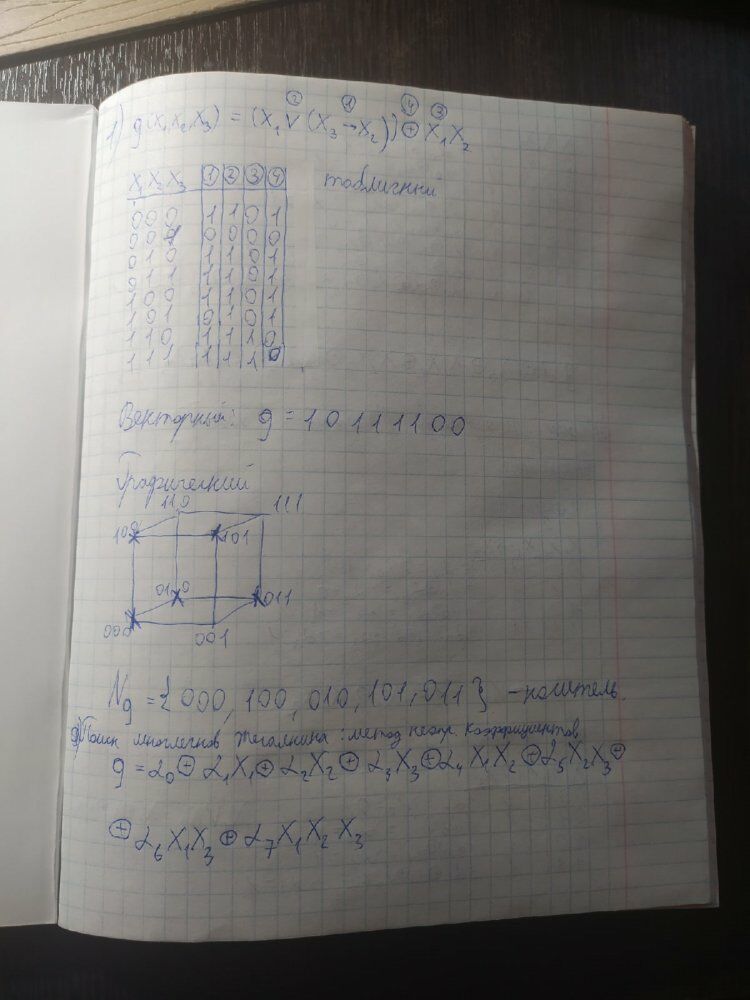 ② ① ④ ③
1) g(X₁X₂X₃) = (X₁ ∨ (X₃ → X₂)) ⊕ X₁X₂
X₁ X₂ X₃ ① ② ③ ④ табличный
0 0 0 1 1 0 1
0 0 1 0 0 0 0
0 1 0 1 1 0 1
0 1 1 1 1 0 1
1 0 0 1 1 0 1
1 0 1 0 1 0 1
1 1 0 1 1 1 0
1 1 1 1 1 1 0
Векторный: g = 1 0 1 1 1 1 0 0
Графический
110 111
100 101
010 011
000 001
Ng = { 000, 100, 010, 101, 011 } - носитель.
Поиск многочленов Жегалкина: метод неопр. коэффициентов
g = α₀ ⊕ α₁X₁ ⊕ α₂X₂ ⊕ α₃X₃ ⊕ α₄X₁X₂ ⊕ α₅X₂X₃ ⊕
⊕ α₆X₁X₃ ⊕ α₇X₁X₂X₃